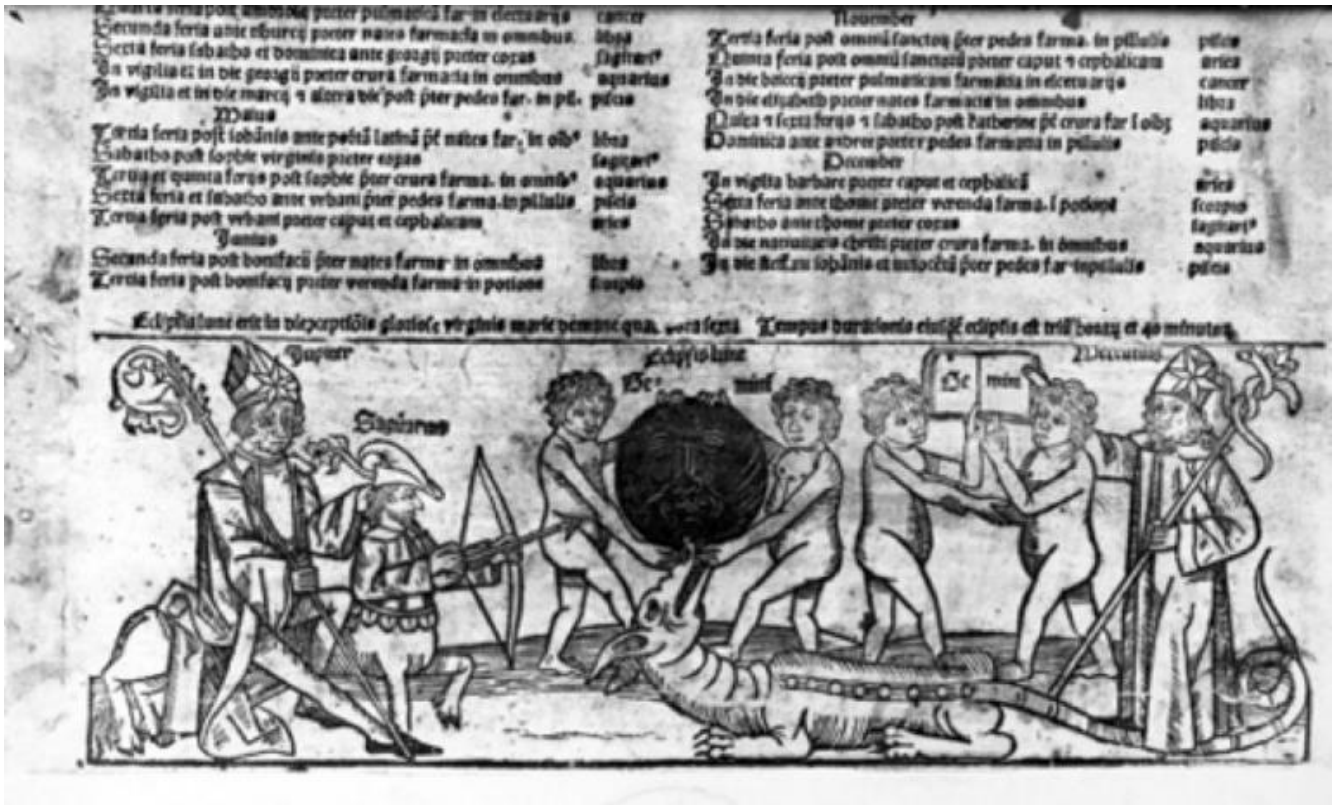 Secunda feria ante tiburcij preter nates farmacia in omnibus libra
Sexta feria sabatho et dominica ante georgij preter coxas sagitari⁹
In vigilia et in die georgij preter crura farmacia in omnibus aquarius
In vigilia et in die marci ⁊ altera die post p̄ter pedes far. in pil. piscis
Maius
Tercia feria post iohānis ante portā latinā p̄t nates far. in oib⁹ libra
Sabatho post sophie virginis preter coxas sagitari⁹
Tercia et quinta ferijs post sophie p̄ter crura farma. in omnib⁹ aquarius
Sexta feria et sabatho ante vrbani p̄ter pedes farma. in pillulis piscis
Tercia feria post vrbani preter caput et cephalicam aries
Junius
Secunda feria post bonifacij p̄ter nates farma. in omnibus libra
Tercia feria post bonifacij preter verenda farma. in potione scorpio
November
Tertia feria post omniū sanctoꝝ p̄ter pedes farma. in pillulis piscis
Quinta feria post omniū sanctorū preter caput ⁊ cephalicam aries
In die preter pulmaticam farmatia in electuarijs cancer
In die elizabeth preter nates farmacia in omnibus libra
⁊ sexta ferijs ⁊ sabatho post katherine p̄t crura far ī oībꝫ aquarius
Dominica ante andree preter pedes farmatia in pillulis piscis
December
In vigilia barbare preter caput et cephalicā aries
Sexta feria ante thome preter verenda farma. ī potione scorpio
Sabatho ante thome preter coxas sagitari⁹
In die natiuitatis christi preter crura farma. in omnibus aquarius
In die steffani iohānis et innocētū p̄ter pedes far. in pillulis piscis
Eclipsis lune erit in die cōceptiōis gloriose virginis marie de mane hora sexta Tempus durationis eius eclipsis est triū horaꝝ et 40 minutoꝝ
Jupiter
Eclipsis lune
Mercurius
Ge mini
Ge mini
Sagitarius